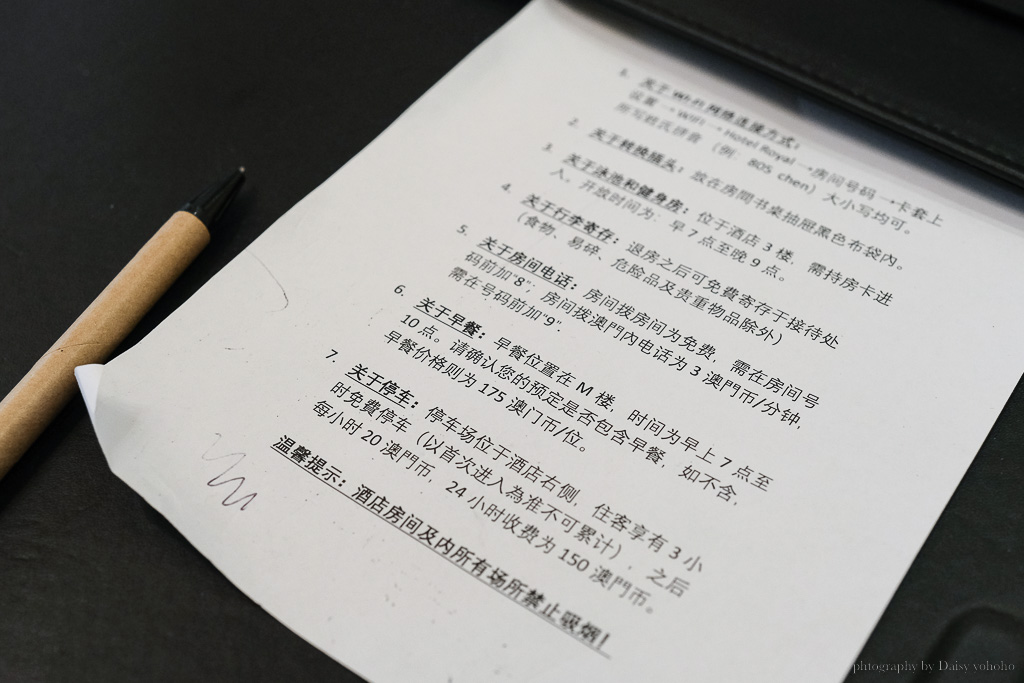 1. 关于 Wi-Fi 网络连接方式：
设置 → WiFi → Hotel Royal → 房间号码 → 卡套上
所写姓氏拼音 （例: 805 chen）大小写均可。
2. 关于转换插头： 放在房間书桌抽屉黑色布袋内。
3. 关于泳池和健身房： 位于酒店 3 楼， 需持房卡进
入。开放时间为：早 7 点至晚 9 点。
4. 关于行李寄存： 退房之后可免費寄存于接待处
（食物、易碎、危险品及贵重物品除外）
5. 关于房间电话： 房间拨房间为免费，需在房间号
码前加"8"; 房间拨澳門内电话为 3 澳門币/分钟,
需在号码前加"9".
6. 关于早餐：早餐位置在 M 楼，时间为早上 7 点至
10 点。请确认您的预定是否包含早餐，如不含,
早餐价格则为 175 澳门币/位。
7. 关于停车： 停车场位于酒店右侧，住客享有 3 小
时免費停车（以首次进入為准不可累计），之后
每小时 20 澳門币，24 小时收费为 150 澳門币。
温馨提示：酒店房间及内所有场所禁止吸烟！
phtography by Daisy yohoho